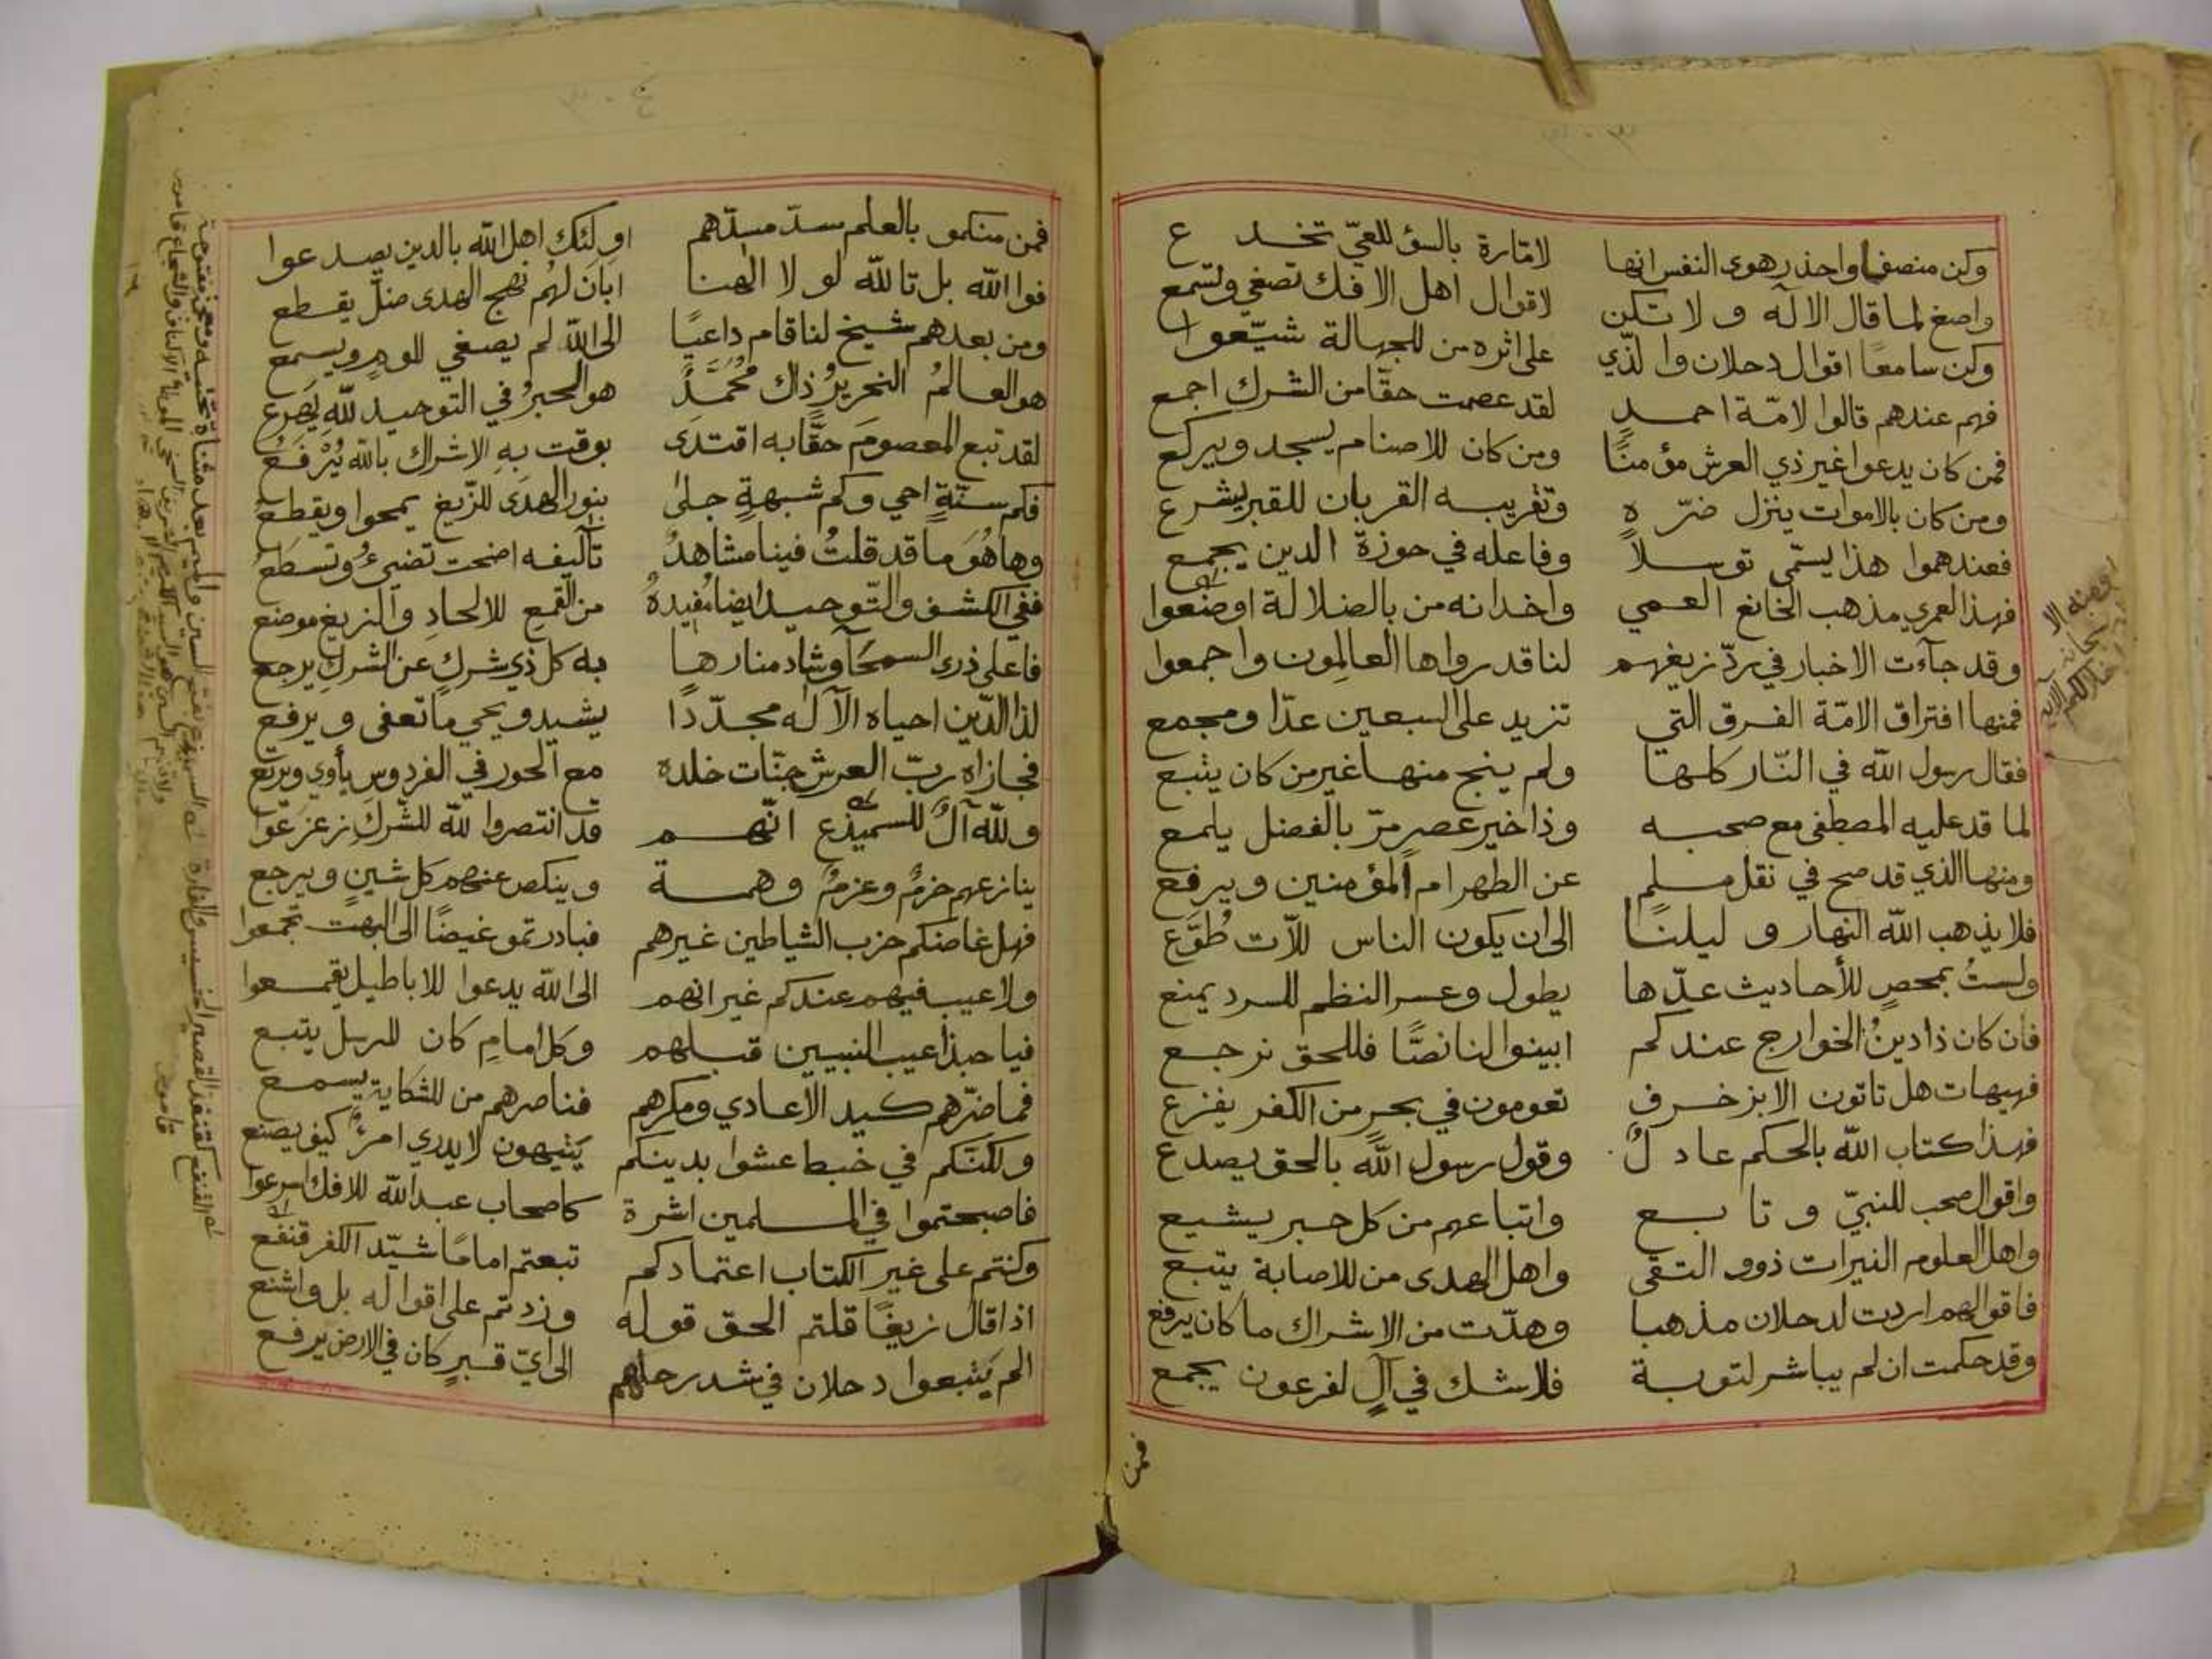 وكن منصفا واحذر هوى النفس انها لامّارة بالسؤ للعيّ تخدع
واصغ لما قال الاله ولا تكن لاقوال اهل الافك تصغي وتسمع
وكن سامعا اقوال دحلان والذي على اثره من للجهالة شيّعوا
فهم عندهم قالوا لامّة احمدٍ لقد عصمت حقّا من الشرك اجمع
فمن كان يدعوا غير ذي العرش مؤمنًا ومن كان للاصنام يسجد ويركع
ومن كان بالاموات ينزل ضرّه وتقريبه القربان للقبر يشرع
فعندهموا هذا يسمّى توسلاً وفاعله في حوزة الدين يجمع
فهذا لعمري مذهب الخانع العمي واخدانه من بالضلالة اوضعوا
وقد جآءت الاخبار في ردّ زيغهم لنا قد رواها العالمون واجمعوا
فمنها افتراق الامّة الفرق التي تزيد على السبعين عدّا ومجمع
فقال رسول الله في النّار كلها ولم ينج منها غير من كان يتبع
لما قد عليه المصطفى مع صحبه وذا خير عصرٍ مرّ بالفضل يلمع
ومنها الذي قد صح في نقل مسلم عن الطهر ام المؤمنين ويرفع
فلا يذهب الله النهار و ليلنا الى ان يكون الناس للاّت طُوَّع
ولستُ بمحصٍ للأحاديث عدّها يطول وعسر النظم للسرد يمنع
فان كان ذا دينُ الخوارج عندكم ابينوا لنا نصًّا فللحق نرجع
فهيهات هل تاتون الا بزخرفٍ تعومون في بحرٍ من الكفر يفزع
فهذا كتاب الله بالحكم عادلٌ وقول رسول الله بالحق يصدع
واقوال صحب للنبيّ وتابع واتباعهم من كل حبر يشيع
واهل العلوم النيرات ذوو التقى واهل الهدى من للاصابة يتبع
فاقوالهم اردت لدحلان مذهبا وهدّت من الاشراك ما كان يرفع
وقد حكمت ان لم يباشر لتوبة فلا شك في آلٍ لفرعون يجمع
فمن
فمن منكمو بالعلم سدّ مسدّهم اولئك اهل الله بالدين يصدعوا
فوالله بل تالله لو لا الهنا ابان لهم نهج الهدى ضلّ يقطع
ومن بعدهم شيخ لنا قام داعيًا الى الله لم يصغي للومٍ ويسمع
هو العالمُ النحريرُ ذاك محُمَّدً هو الحبرُ في التوحيد لله يَصرع
لقد تبع المعصومَ حقًّا به اقتدى بوقت بهِ الاشراك بالله يُرْفَعُ
فكم سنّةٍ احيى وكم شبهةٍ جلىٰ بنور الهدى للزّيغ يمحوا ويقطع
وها هُوَ ما قد قلتُ فينا مشاهدُ تآليفه اضحت تضيئُ وتسطَعُ
ففي الكشف والتّوحيد ايضا مُفيدةٌ من القمع للالحادِ والزيغ موضع
فاعلى ذرى السمحآ وشاد منارها به كل ذي شركٍ عن الشركِ يرجع
لذا الدّين احياه الآله مجدّدًا يشيد ويحيي ما تعفى ويرفع
فجازاه ربّ العرش جنّات خلده مع الحور في الفردوس يأوي ويرتع
ولله آلٌ للسميذع انّهم قد انتصروا لله للشّركِ زعزعوا
ينازعهم حزمٌ وعزمٌ وهمة وينكص عنهم كل شينٍ ويرجع
فهل غاضنكم حزب الشياطين غيرهم فبادرتمو غيضًا الى البهت تجمعوا
ولا عيب فيهم عندكم غير انهم الى الله يدعوا للاباطيل يقمعوا
فيا حبذا عيب النبيين قبلهم وكل امامٍ كان للرسل يتبع
فما ضرّهم كيد الاعادي ومكرهم فناصرهم من للشكاية يسمع
ولكنّكم في خبط عشوا بدينكم يتيهون لا يدري امرؤٌ كيف يصنع
فاصبحتموا في المسلمين اشرة كاصحاب عبد الله للافك اسرعوا
وكنتم على غير الكتاب اعتمادكم تبعتم امامًا شيّد الكفر قنفع
اذا قال زيغًا قلتم الحق قوله وزدتم على اقواله بل واشنع
الم يتبعوا دحلان في شد رحلهم الى ايّ قبرٍ كان في الارض يرفع